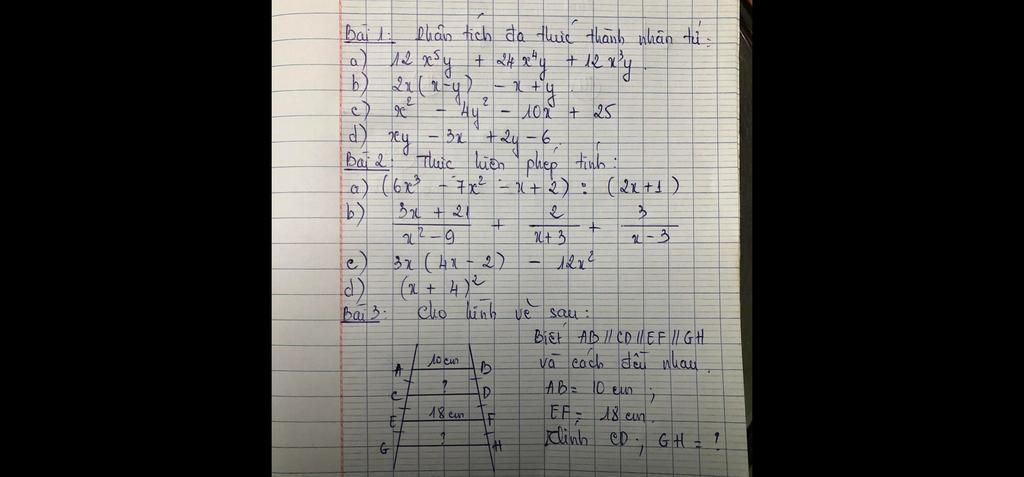 Bài 1: Phân tích đa thức thành nhân tử:
a) 12x⁵y + 24x⁴y + 12x³y.
b) 2x(x-y) - x + y.
c) x² - 4y² - 10x + 25
d) xy - 3x + 2y - 6.
Bài 2: Thực hiện phép tính:
a) (6x³ - 7x² - x + 2) : (2x+1)
b) (3x + 21)/(x² - 9) + 2/(x+3) + 3/(x-3)
c) 3x(4x - 2) - 12x²
d) (x + 4)²
Bài 3: Cho hình vẽ sau:
Biết AB // CD // EF // GH
và cách đều nhau.
AB = 10 cm;
EF = 18 cm.
Tính CD; GH = ?
A 10 cm B
C ? D
E 18 cm F
G ? H